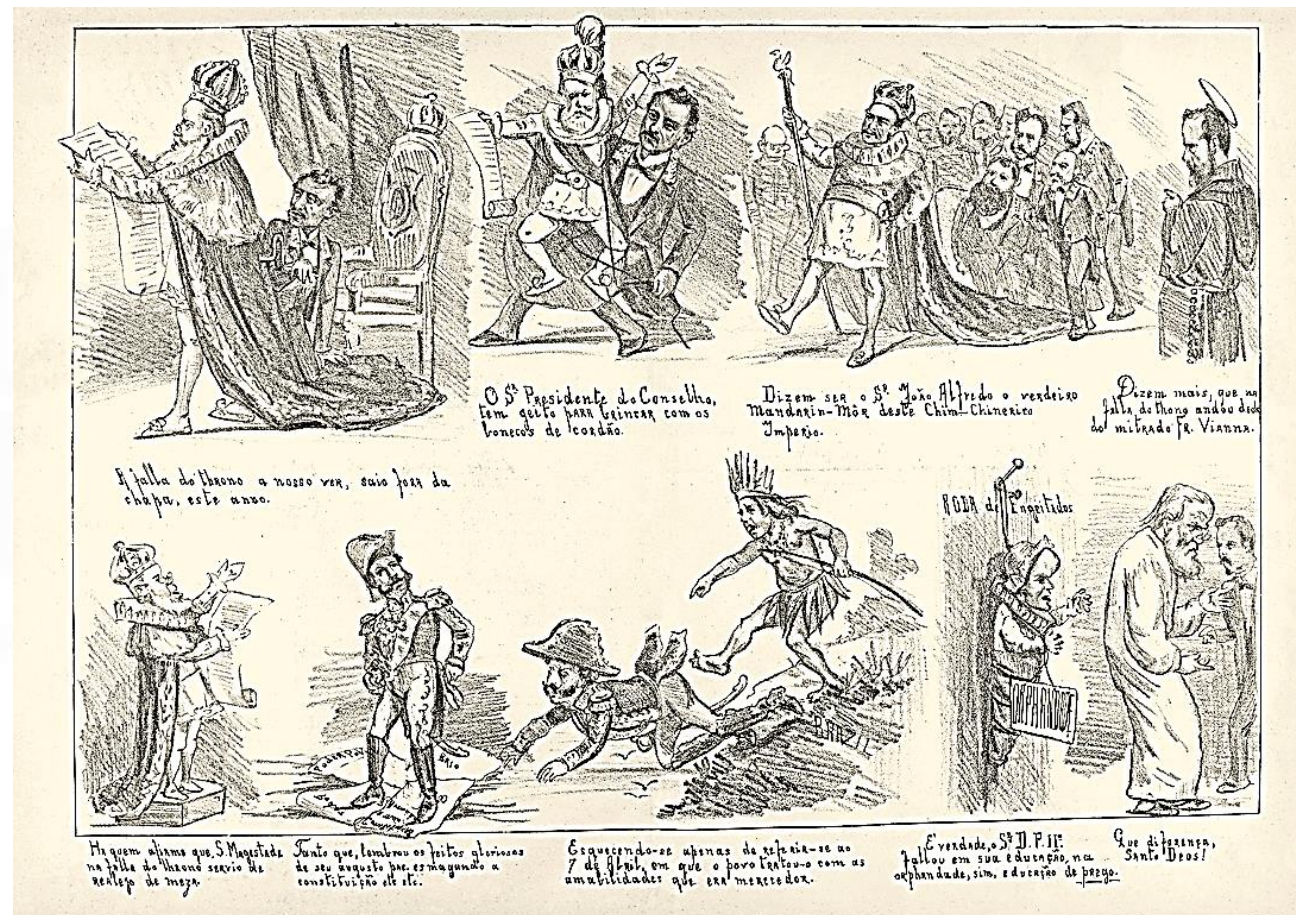 A falla do throno a nosso ver, saio fora da
chapa, este anno.
O Sr Presidente do Conselho,
tem geito para brincar com os
bonecos de cordão.
Dizem ser o Sr João Alfredo o verdeiro
Mandarin-Mór deste Chim-Chinerico
Imperio.
Dizem mais, que na
falla do thono andou dedo
do mitrado Fr. Vianna.
Ha quem afirme que, S. Magestade
na falla do throno servio de
realejo de meza.
Tanto que, lembrou os feitos gloriosos
de seu augusto pae esmagando a
constituição etc etc.
BRAZIL
Esquecendo-se apenas de referir-se ao
7 de Abril, em que o povo tratou-o com as
amabilidades que era merecedor.
RODA de Engeitados
ORPHANDADE
E verdade, o Sr D. P. II
fallou em sua educação, na
orphandade, sim, educação de prego.
Que diferença,
Santo Deos!